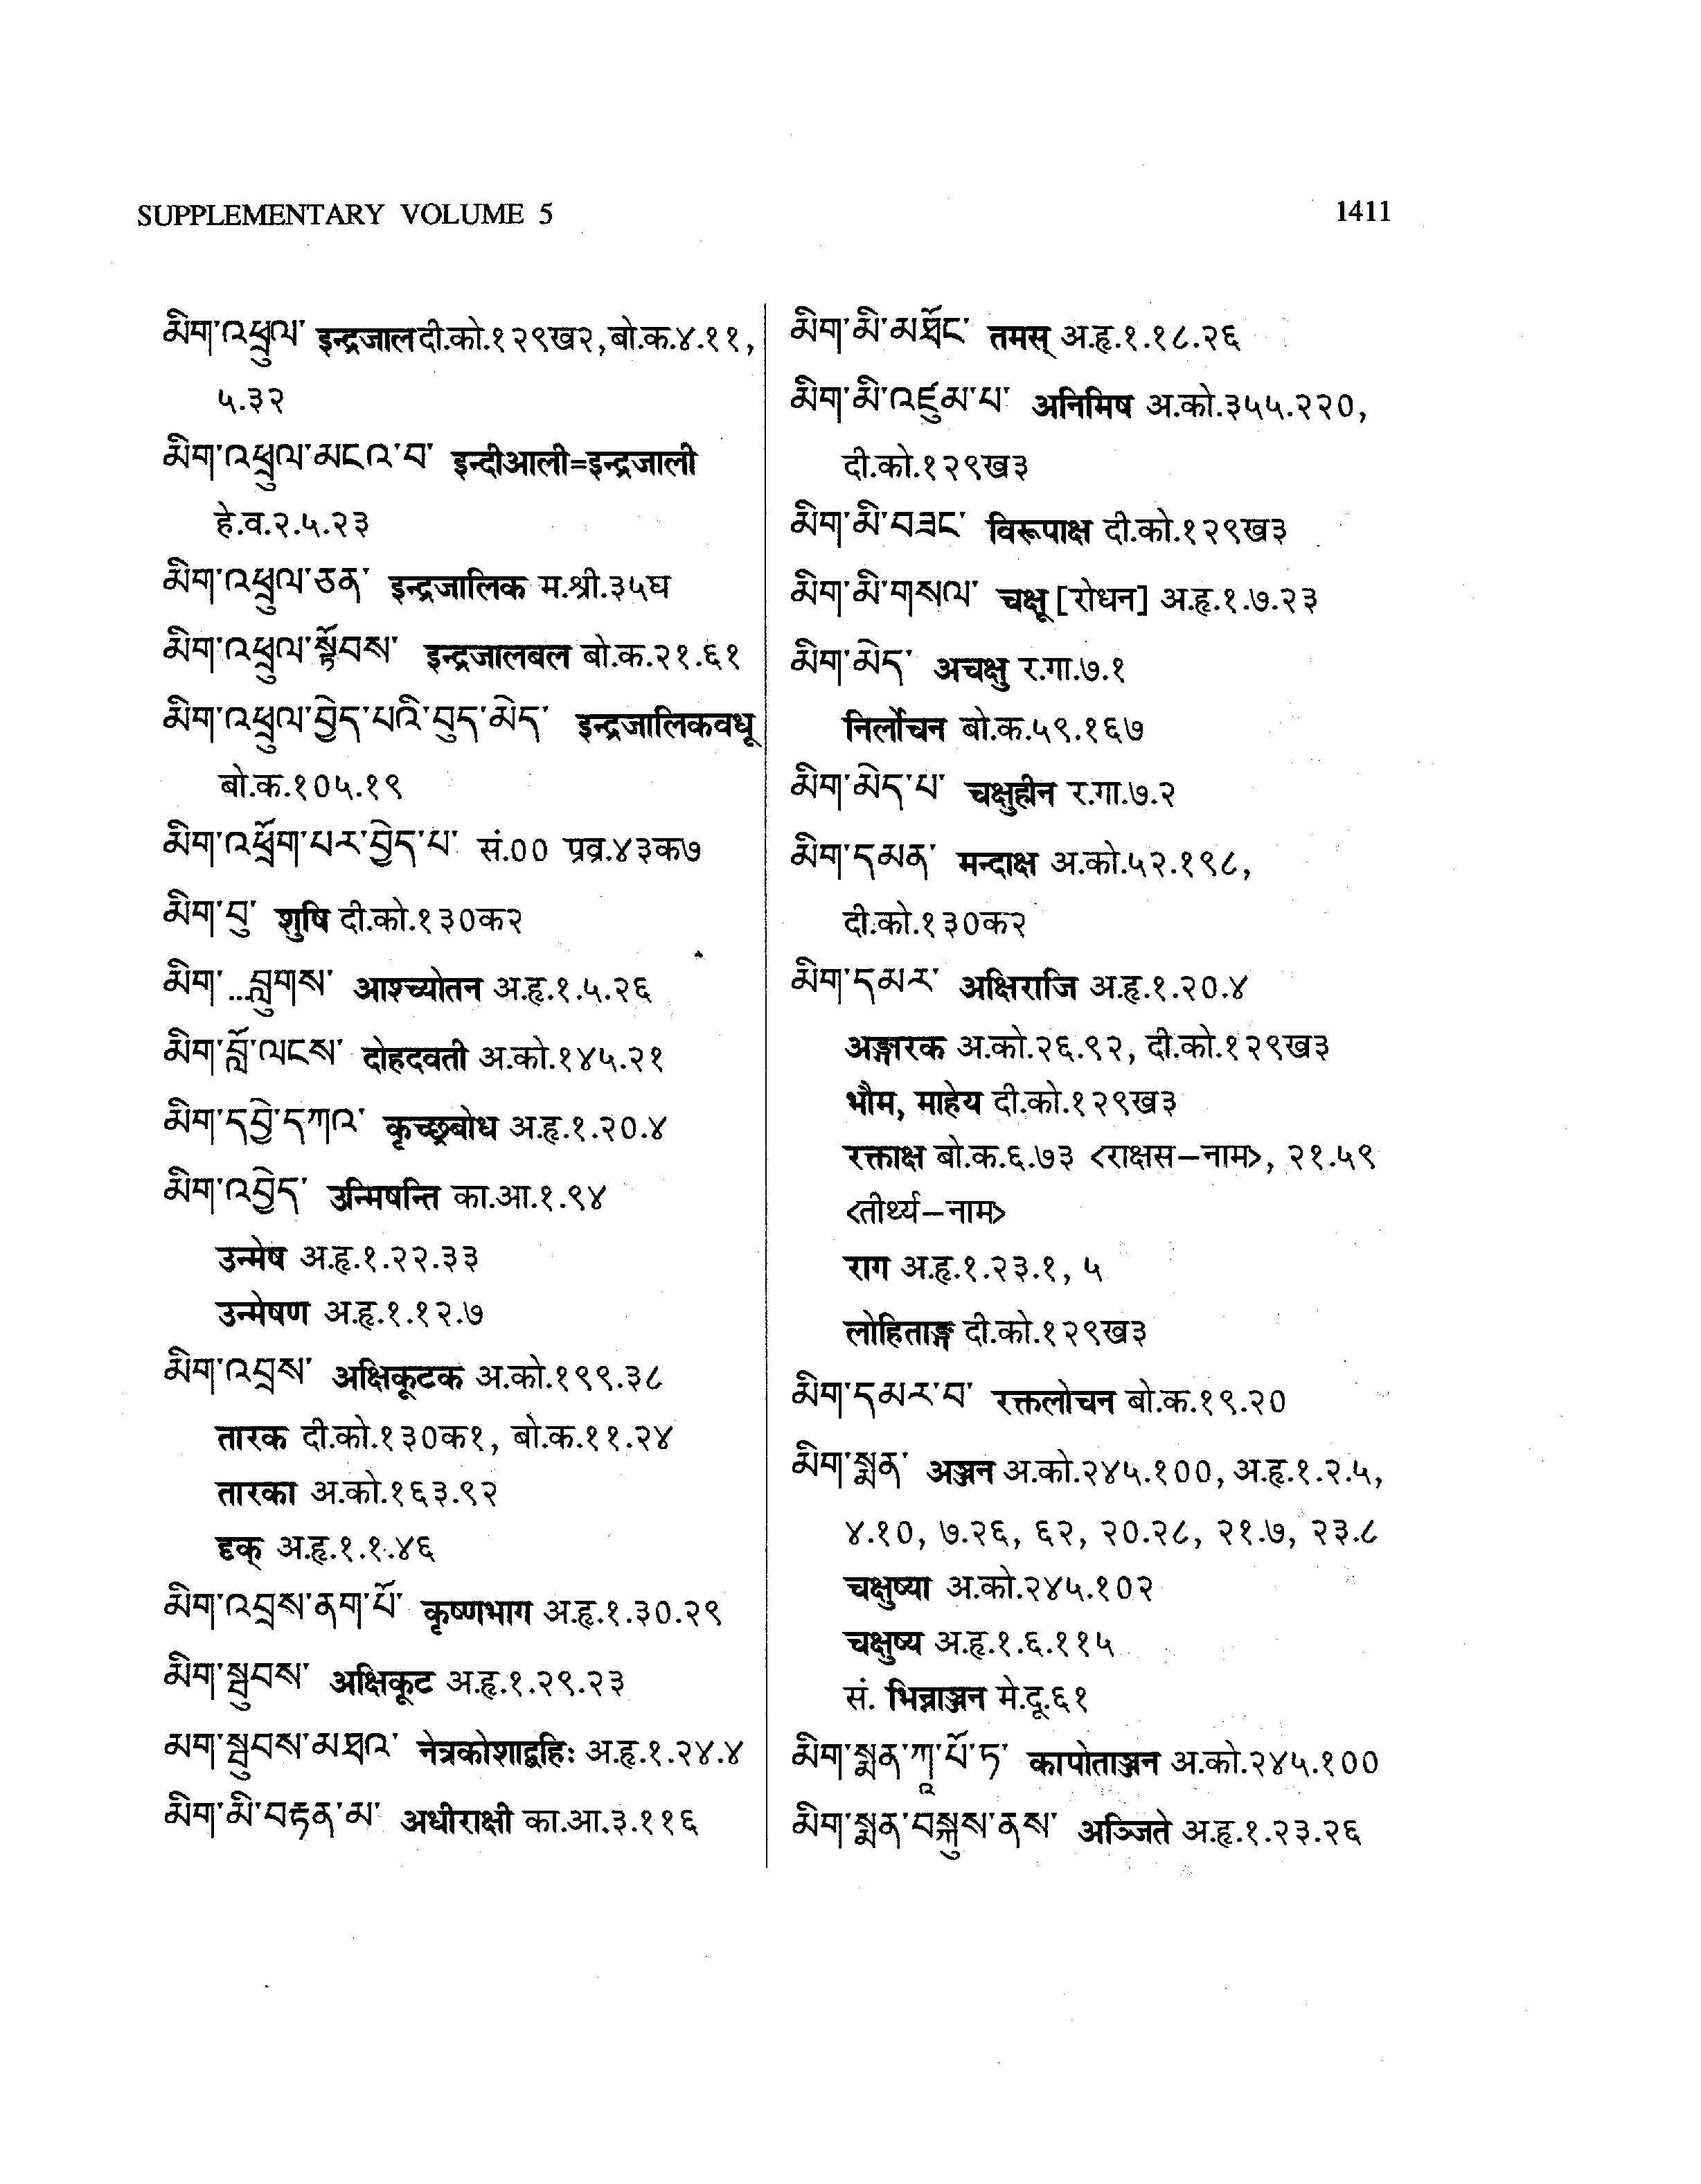 SUPPLEMENTARY VOLUME 5 1411
མིག་འཕྲུལ་ इन्द्रजाल दी.को.१२९ख२, बो.क.४.११,
५.३२
མིག་འཕྲུལ་མངའ་བ་ इन्दीआली=इन्द्रजाली
हे.व.२.५.२३
མིག་འཕྲུལ་ཅན་ इन्द्रजालिक म.श्री.३५घ
མིག་འཕྲུལ་སྟོབས་ इन्द्रजालबल बो.क.२१.६१
མིག་འཕྲུལ་བྱེད་པའི་བུད་མེད་ इन्द्रजालिकवधू
बो.क.१०५.१९
མིག་འཕྲོག་པར་བྱེད་པ་ सं.०० प्रव्र.४३क७
མིག་བུ་ शुषि दी.को.१३०क२
མིག་...བླུགས་ आश्च्योतन अ.हृ.१.५.२६
མིག་བློ་ལངས་ दोहदवती अ.को.१४५.२१
མིག་དབྱེ་དཀའ་ कृच्छ्रबोध अ.हृ.१.२०.४
མིག་འབྱེད་ उन्मिषन्ति का.आ.१.९४
उन्मेष अ.हृ.१.२२.३३
उन्मेषण अ.हृ.१.१२.७
མིག་འབྲས་ अक्षिकूटक अ.को.१९९.३८
तारक दी.को.१३०क१, बो.क.११.२४
तारका अ.को.१६३.९२
दृक् अ.हृ.१.१.४६
མིག་འབྲས་ནག་པོ་ कृष्णभाग अ.हृ.१.३०.२९
མིག་སྦུབས་ अक्षिकूट अ.हृ.१.२९.२३
མག་སྦུབས་མཐའ་ नेत्रकोशाद्बहिः अ.हृ.१.२४.४
མིག་མི་བརྟན་མ་ अधीराक्षी का.आ.३.११६
མིག་མི་མཐོང་ तमस् अ.हृ.१.१८.२६
མིག་མི་འཛུམ་པ་ अनिमिष अ.को.३५५.२२०,
दी.को.१२९ख३
མིག་མི་བཟང་ विरूपाक्ष दी.को.१२९ख३
མིག་མི་གསལ་ चक्षू [रोधन] अ.हृ.१.७.२३
མིག་མེད་ अचक्षु र.गा.७.१
निर्लोचन बो.क.५९.१६७
མིག་མེད་པ་ चक्षुहीन र.गा.७.२
མིག་དམན་ मन्दाक्ष अ.को.५२.१९८,
दी.को.१३०क२
མིག་དམར་ अक्षिराजि अ.हृ.१.२०.४
अङ्गारक अ.को.२६.९२, दी.को.१२९ख३
भौम, माहेय दी.को.१२९ख३
रक्ताक्ष बो.क.६.७३ <राक्षस-नाम>, २१.५९
<तीर्थ्य-नाम>
राग अ.हृ.१.२३.१, ५
लोहिताङ्ग दी.को.१२९ख३
མིག་དམར་བ་ रक्तलोचन बो.क.१९.२०
མིག་སྨན་ अञ्जन अ.को.२४५.१००, अ.हृ.१.२.५,
४.१०, ७.२६, ६२, २०.२८, २१.७, २३.८
चक्षुष्या अ.को.२४५.१०२
चक्षुष्य अ.हृ.१.६.११५
सं. भिन्नाञ्जन मे.दू.६१
མིག་སྨན་ཀཱ་པོ་ཏ་ कापोताञ्जन अ.को.२४५.१००
མིག་སྨན་བསྐུས་ནས་ अञ्जिते अ.हृ.१.२३.२६